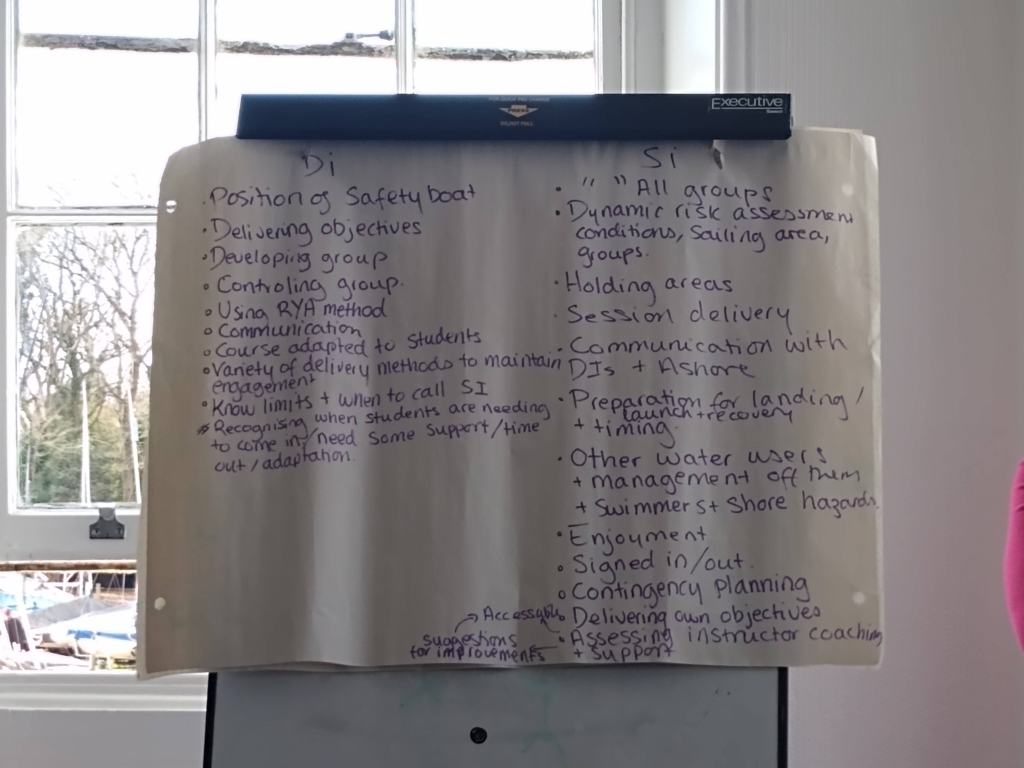 Executive
Di
. Position of Safety boat
. Delivering objectives
. Developing group
. Controling group.
. Using RYA method
. Communication
. Course adapted to students
. Variety of delivery methods to maintain
engagement
. Know limits + when to call SI
* Recognising when students are needing
to come in/need some support/time
out/adaptation.
Si
. " " All groups
. Dynamic risk assessment
conditions, Sailing area,
groups.
. Holding areas
. Session delivery
. Communication with
DIs + Ashore
. Preparation for landing/
launch + recovery
+ timing.
. Other water users
+ management off them
+ swimmers + shore hazards.
. Enjoyment
. Signed in/out.
. Contingency planning
. Delivering own objectives
. Assessing instructor coaching
+ support
suggestions
for improvements